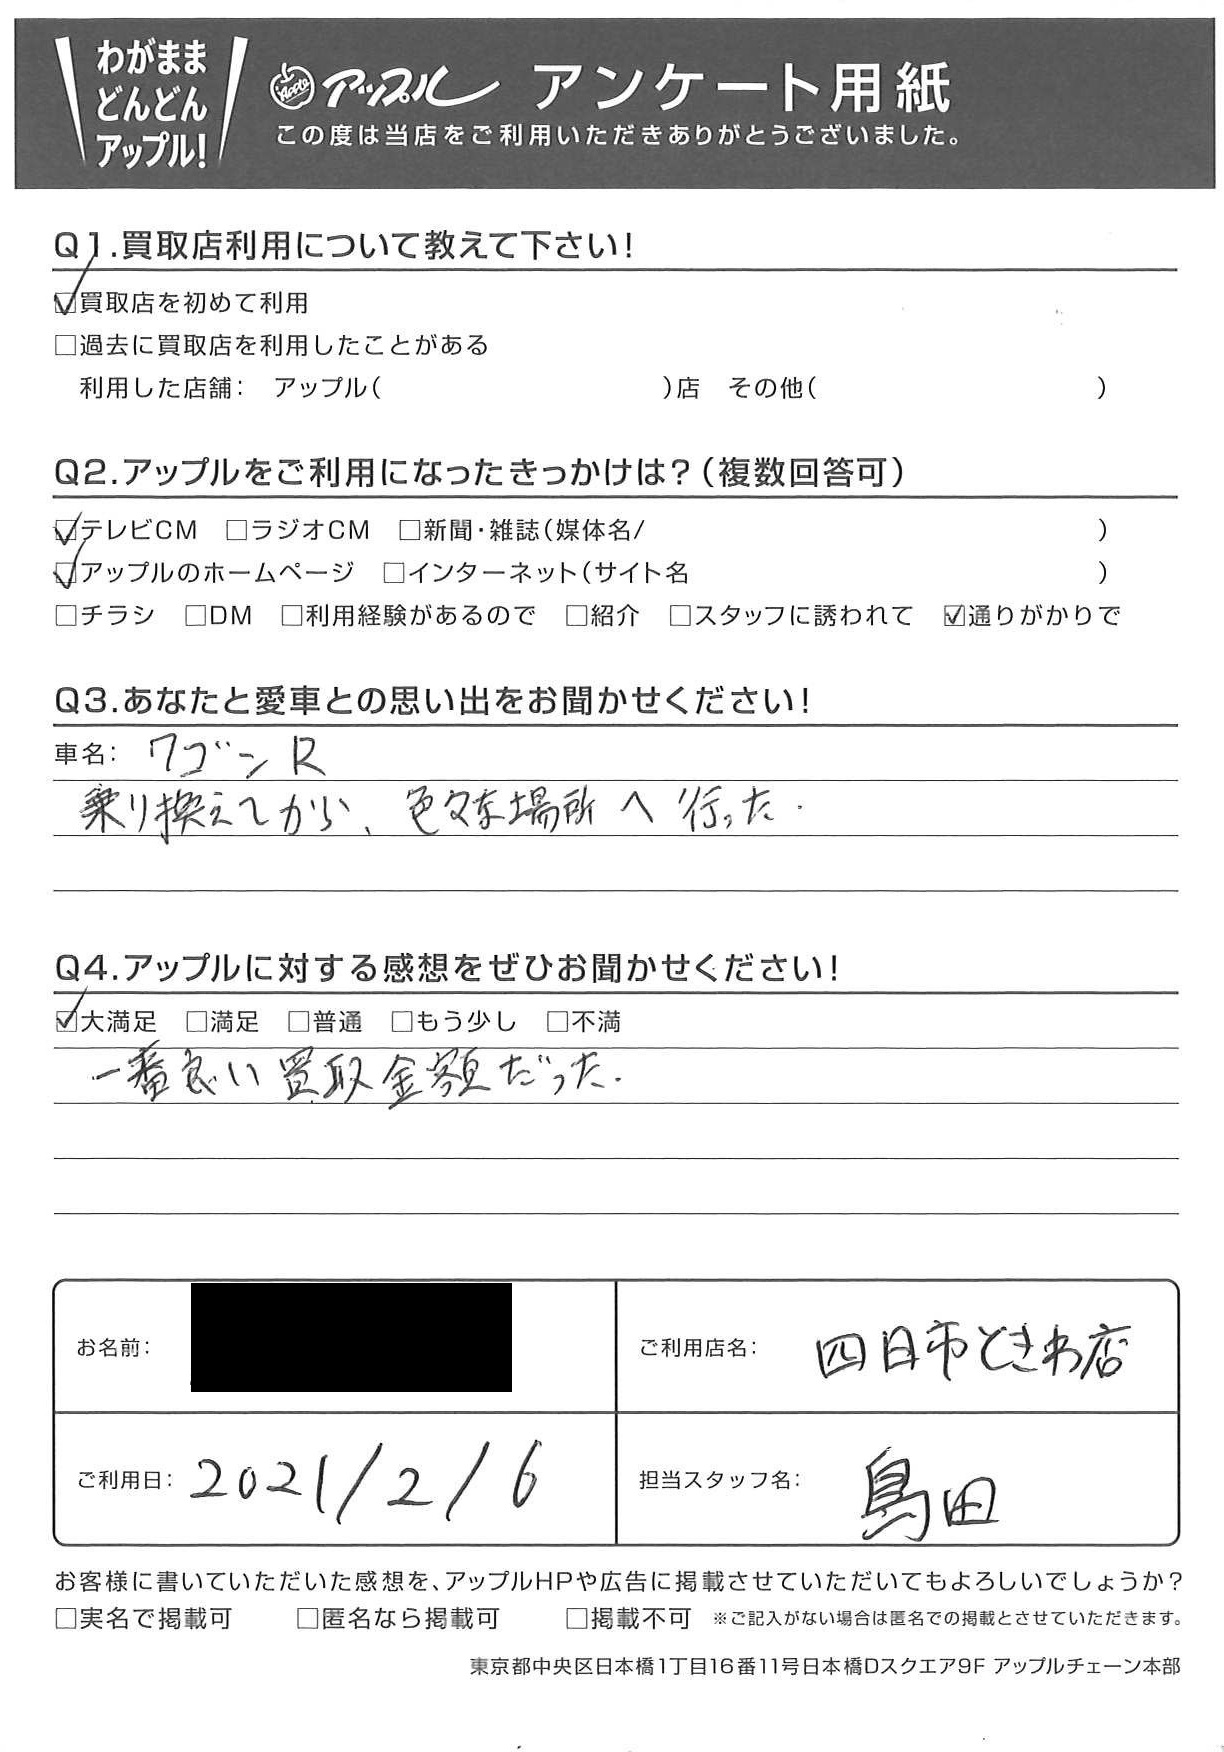 わがまま
どんどん
アップル!
Apple アップル アンケート用紙
この度は当店をご利用いただきありがとうございました。
Q1.買取店利用について教えて下さい!
☑買取店を初めて利用
□過去に買取店を利用したことがある
利用した店舗: アップル( )店 その他( )
Q2.アップルをご利用になったきっかけは?(複数回答可)
☑テレビCM □ラジオCM □新聞・雑誌(媒体名/ )
☑アップルのホームページ □インターネット(サイト名 )
□チラシ □DM □利用経験があるので □紹介 □スタッフに誘われて ☑通りがかりで
Q3.あなたと愛車との思い出をお聞かせください!
車名: ワゴンR
乗り換えてから、色々な場所へ行った.
Q4.アップルに対する感想をぜひお聞かせください!
☑大満足 □満足 □普通 □もう少し □不満
一番良い買取金額だった.
お名前:
ご利用店名: 四日市ときわ店
ご利用日: 2021/2/6
担当スタッフ名: 島田
お客様に書いていただいた感想を、アップルHPや広告に掲載させていただいてもよろしいでしょうか?
□実名で掲載可 □匿名なら掲載可 □掲載不可 ※ご記入がない場合は匿名での掲載とさせていただきます。
東京都中央区日本橋1丁目16番11号日本橋Dスクエア9F アップルチェーン本部